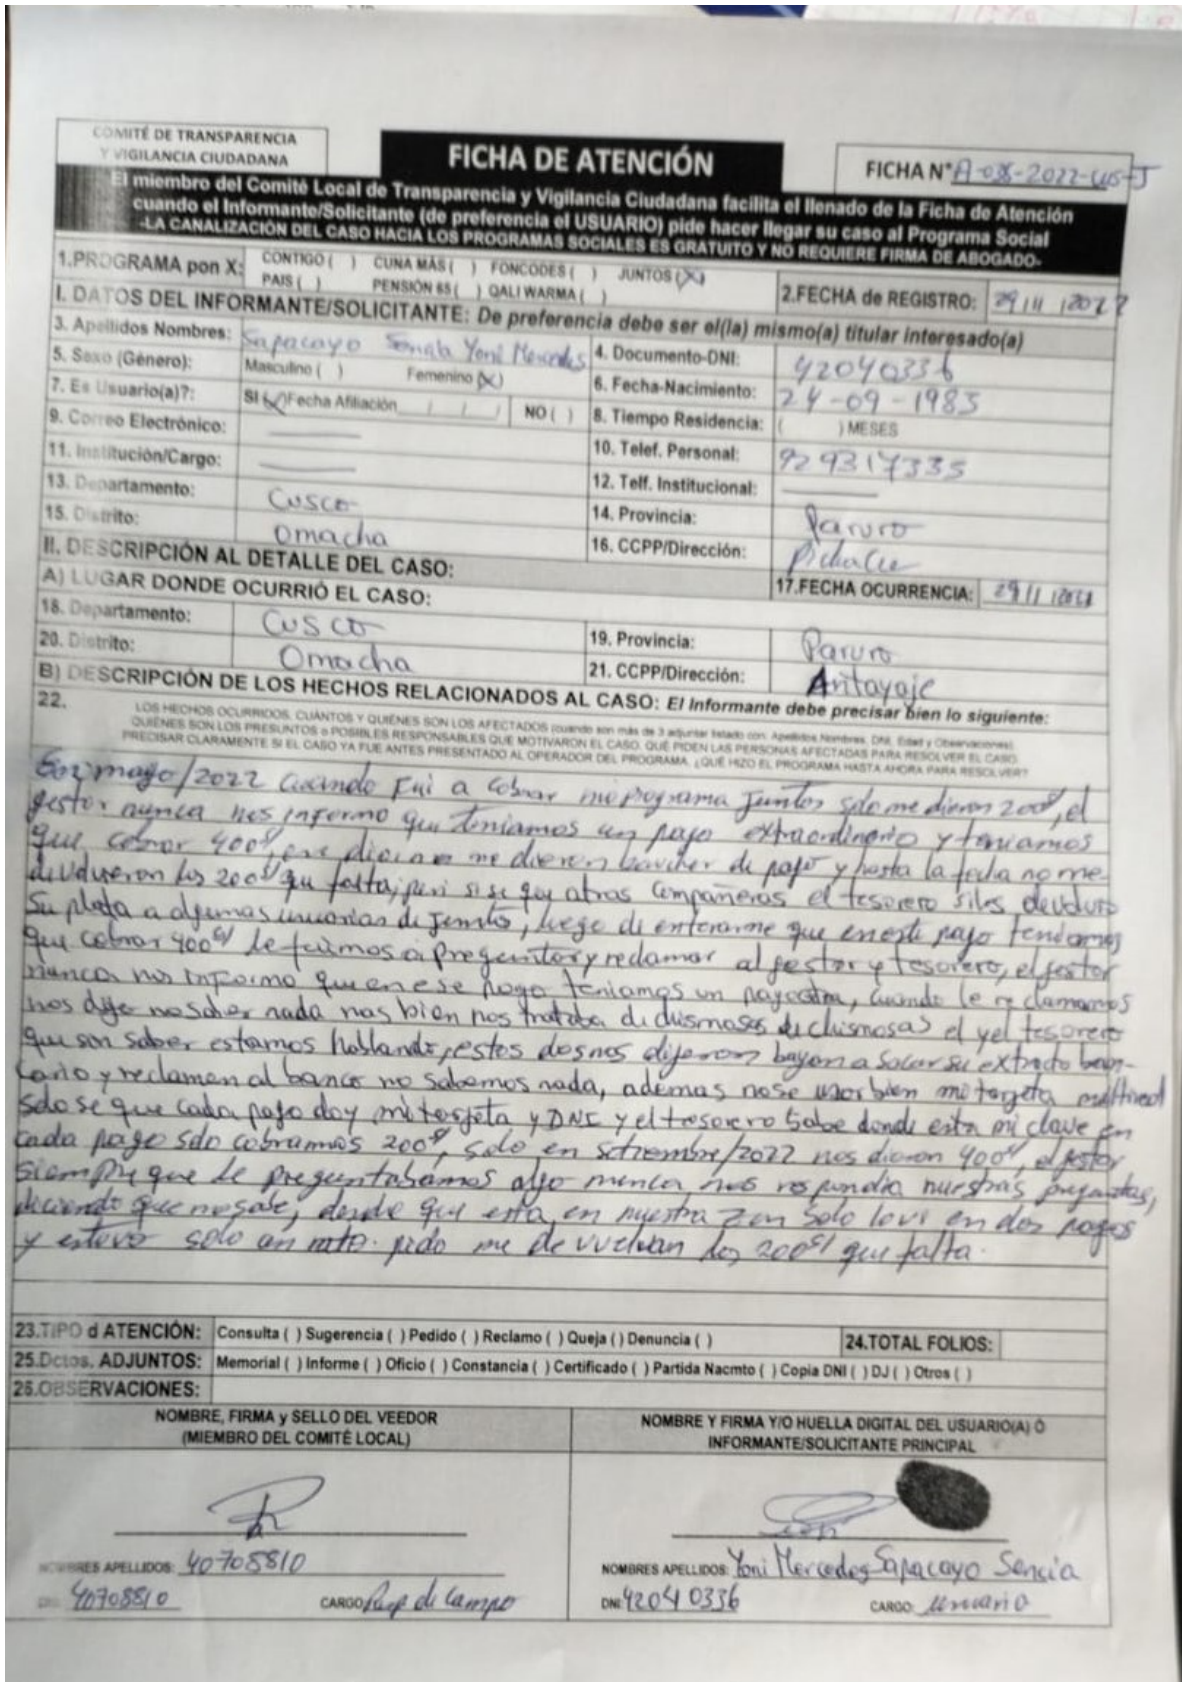 COMITÉ DE TRANSPARENCIA
Y VIGILANCIA CIUDADANA
FICHA DE ATENCIÓN
FICHA N° A-038-2022-CUS-J
El miembro del Comité Local de Transparencia y Vigilancia Ciudadana facilita el llenado de la Ficha de Atención
cuando el Informante/Solicitante (de preferencia el USUARIO) pide hacer llegar su caso al Programa Social
-LA CANALIZACIÓN DEL CASO HACIA LOS PROGRAMAS SOCIALES ES GRATUITO Y NO REQUIERE FIRMA DE ABOGADO-
1.PROGRAMA pon X: CONTIGO ( ) CUNA MÁS ( ) FONCODES ( ) JUNTOS (X)
PAIS ( ) PENSIÓN 65 ( ) QALI WARMA ( )
2.FECHA de REGISTRO: 29/11/2022
I. DATOS DEL INFORMANTE/SOLICITANTE: De preferencia debe ser el(la) mismo(a) titular interesado(a)
3. Apellidos Nombres: Sapacayo Yoni Mercedes 4. Documento-DNI: 42040336
5. Sexo (Género): Masculino ( ) Femenino (X) 6. Fecha-Nacimiento: 24-09-1983
7. Es Usuario(a)?: SI (X) Fecha Afiliación / / / NO ( ) 8. Tiempo Residencia: ( ) MESES
9. Correo Electrónico: 10. Telef. Personal: 929317335
11. Institución/Cargo: 12. Telf. Institucional:
13. Departamento: Cusco 14. Provincia: Paruro
15. Distrito: Omacha 16. CCPP/Dirección:
II. DESCRIPCIÓN AL DETALLE DEL CASO:
A) LUGAR DONDE OCURRIÓ EL CASO: 17.FECHA OCURRENCIA: 29/11
18. Departamento: Cusco 19. Provincia: Paruro
20. Distrito: Omacha 21. CCPP/Dirección: Antayaje
B) DESCRIPCIÓN DE LOS HECHOS RELACIONADOS AL CASO: El Informante debe precisar bien lo siguiente:
22. LOS HECHOS OCURRIDOS, CUÁNTOS Y QUIÉNES SON LOS AFECTADOS (cuando son más de 3 adjuntar listado con: Apellidos,Nombres, DNI, Edad y Observaciones)
QUIÉNES SON LOS PRESUNTOS o POSIBLES RESPONSABLES QUE MOTIVARON EL CASO. QUÉ PIDEN LAS PERSONAS AFECTADAS PARA RESOLVER EL CASO.
PRECISAR CLARAMENTE SI EL CASO YA FUE ANTES PRESENTADO AL OPERADOR DEL PROGRAMA. ¿QUÉ HIZO EL PROGRAMA HASTA AHORA PARA RESOLVER?
mayo/2022 cuando fui a cobrar programa Juntos solo me dieron 200, el
gestor nunca nos informo que teniamos un pago extraordinario y teniamos
que cobrar 400, me dieron baucher de pago y hasta la fecha no me
devolvieron los 200 que falta, pero si se que a otras compañeras el tesorero si les devolvio
su plata a algunas usuarias de Juntos, luego di enterarme que en este pago teniamos
que cobrar 400 le fuimos a preguntar y reclamar al gestor y tesorero, el gestor
nunca nos informo que en ese pago teniamos un pago extra, cuando le reclamamos
nos dijo no saber nada mas bien nos trataba de chismosas el y el tesorero
que sin saber estamos hablando, estos dos nos dijeron bayan a sacar su extracto banc-
ario y reclamen al banco no sabemos nada, ademas no se usar bien mi targeta multired
solo se que cada pago doy mi tarjeta y DNI y el tesorero sabe donde esta mi clave en
cada pago solo cobramos 200, solo en setiembre/2022 nos dieron 400, el gestor
siempre que le preguntabamos algo nunca nos respondia nuestras preguntas,
diciendo que no sabe, desde que esta en nuestra zona solo lo vi en dos pagos
y estuvo solo un rato. pido me devuelvan los 200 que falta.
23.TIPO d ATENCIÓN: Consulta ( ) Sugerencia ( ) Pedido ( ) Reclamo ( ) Queja ( ) Denuncia ( ) 24.TOTAL FOLIOS:
25.Dctos. ADJUNTOS: Memorial ( ) Informe ( ) Oficio ( ) Constancia ( ) Certificado ( ) Partida Nacmto ( ) Copia DNI ( ) DJ ( ) Otros ( )
26.OBSERVACIONES:
NOMBRE, FIRMA y SELLO DEL VEEDOR
(MIEMBRO DEL COMITÉ LOCAL)
NOMBRE Y FIRMA Y/O HUELLA DIGITAL DEL USUARIO(A) Ó
INFORMANTE/SOLICITANTE PRINCIPAL
NOMBRES APELLIDOS: 40708810
DNI: 40708810 CARGO: Resp de Campo
NOMBRES APELLIDOS: Yoni Mercedes Sapacayo Sencia
DNI: 42040336 CARGO: usuario